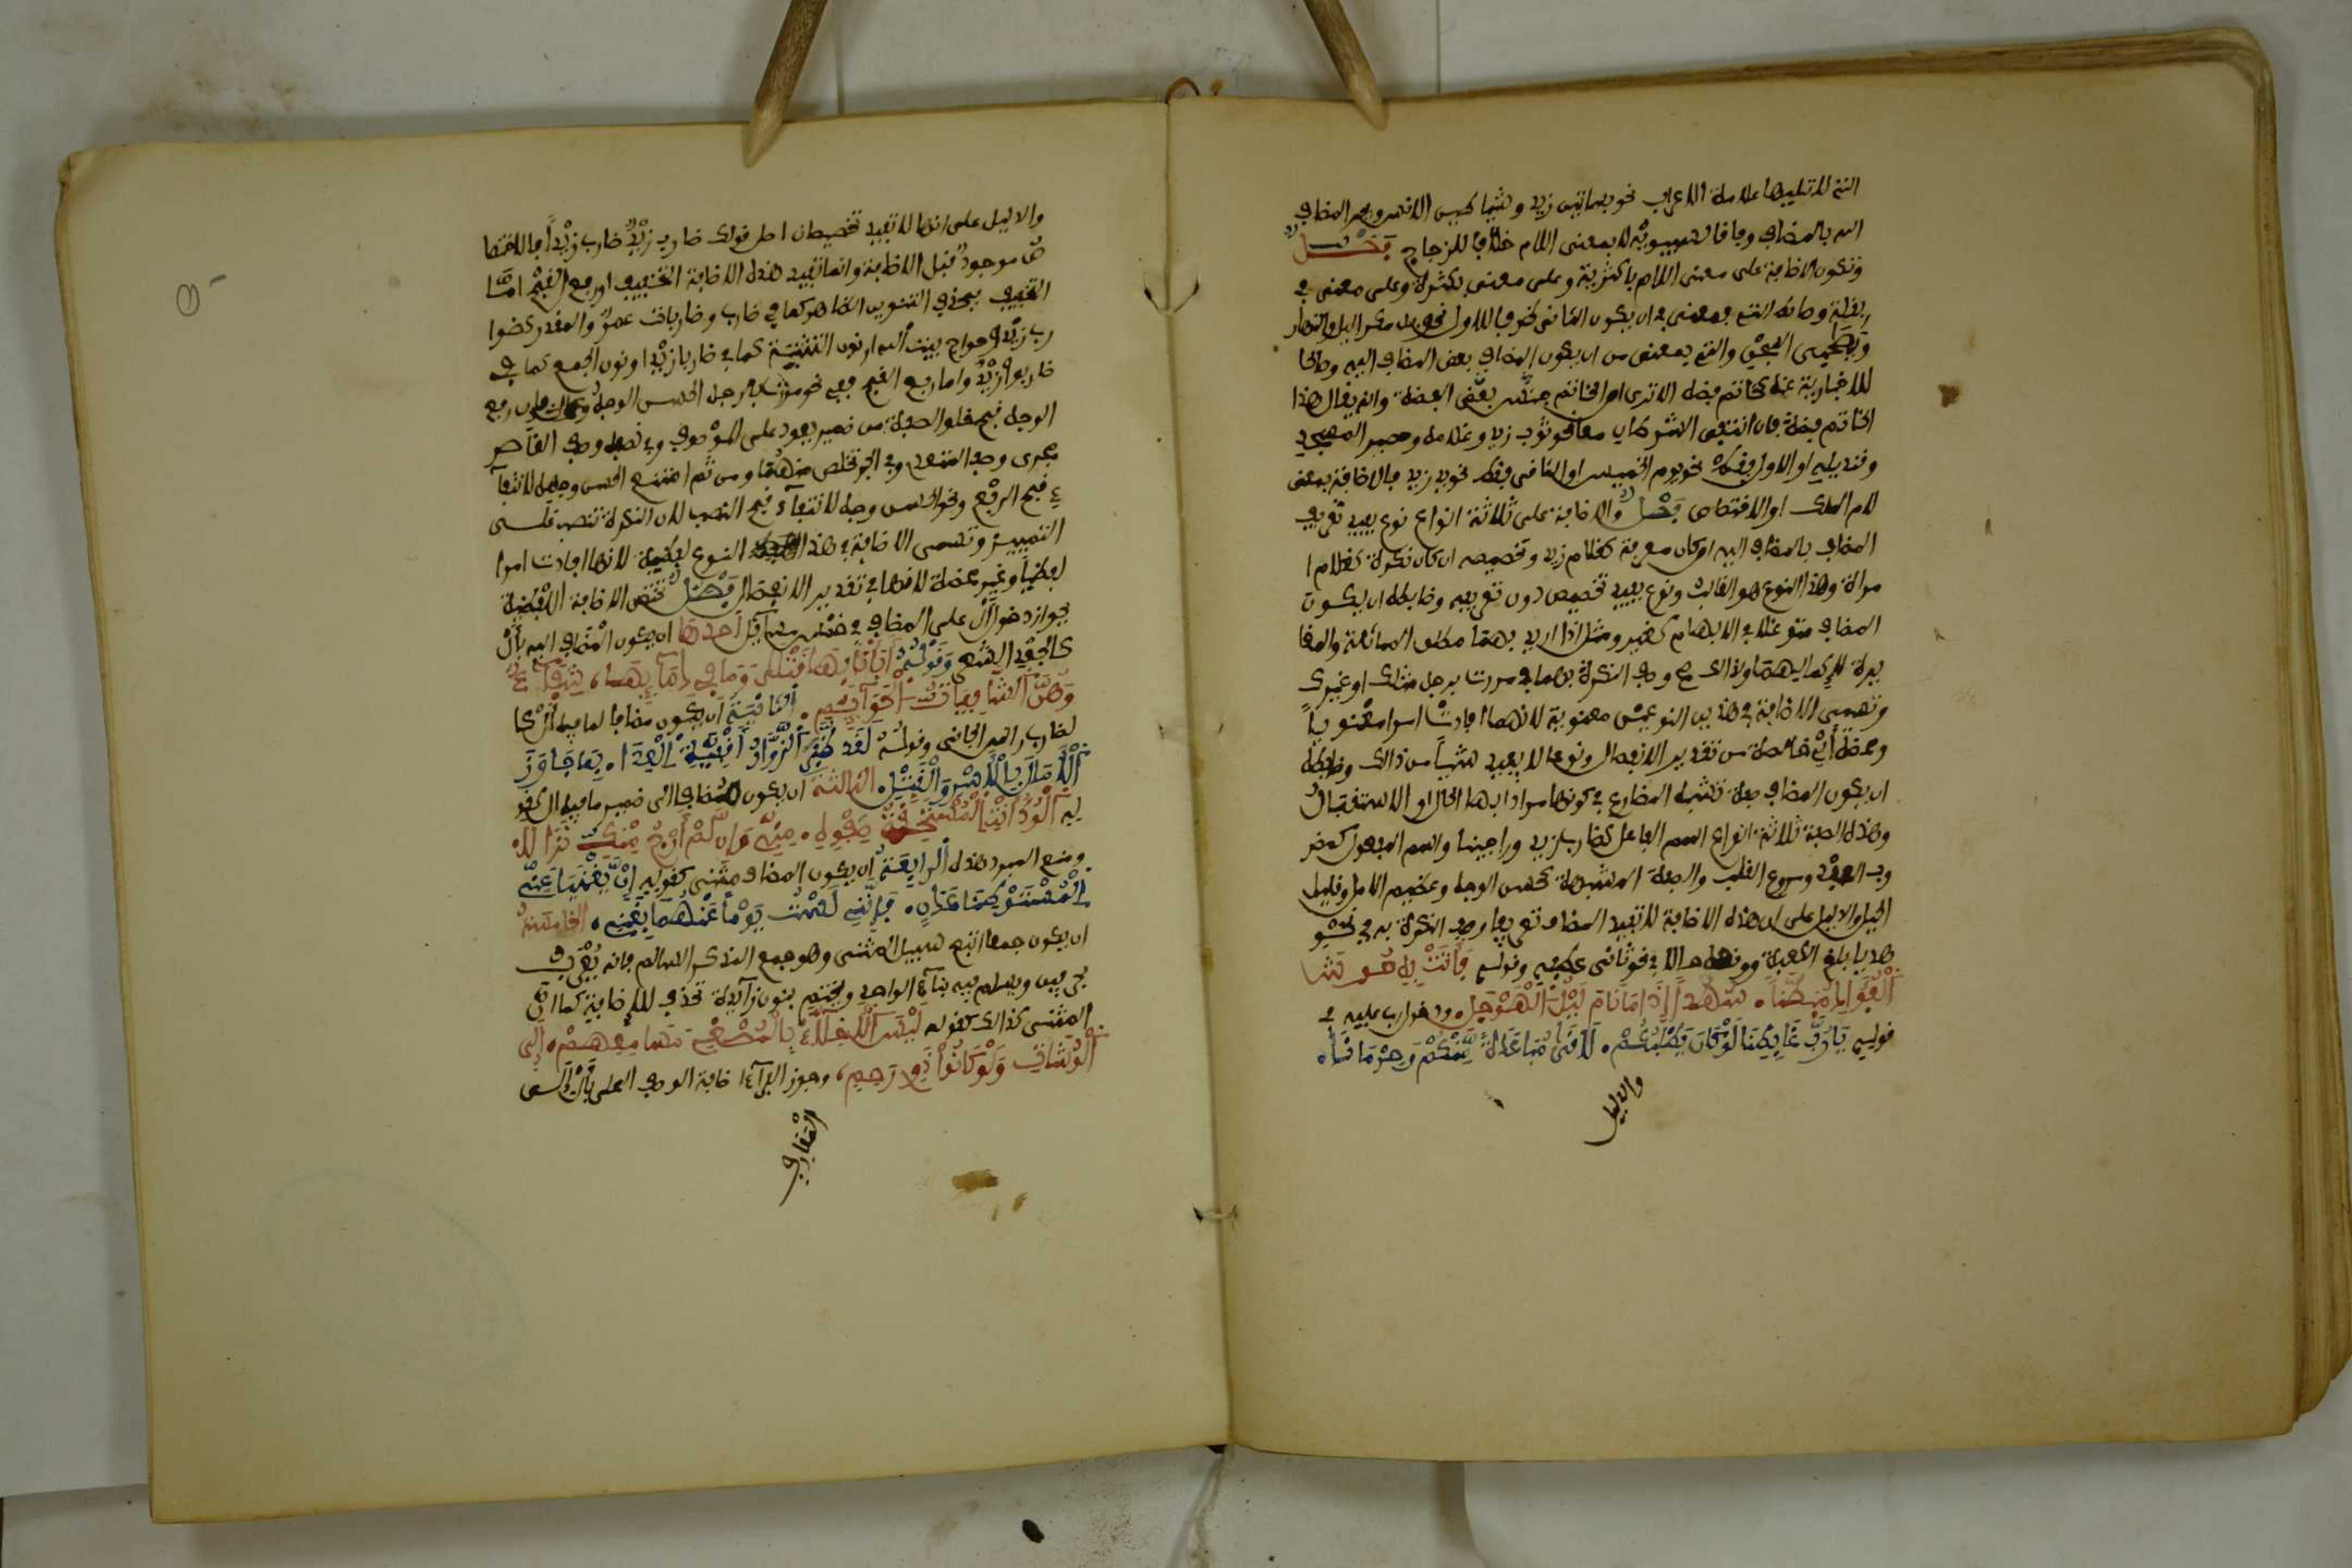 التي لا تليها علامة الاعراب نحو بصائير زيد وشياطين الانس ويجر المضاف
اليه بالمضاف وفاقا لسيبويه لا بمعنى اللام خلافا للزجاج فصل
وتكون الاضافة على معنى اللام باكثرية وعلى معنى من بكثرة وعلى معنى في
بقلة وضابط التي بمعنى في ان يكون الثاني ظرفا للاول نحو بل مكر اليل والنهار
ويصحبي السجن والتي بمعنى من ان يكون المضاف بعض المضاف اليه وصالحا
للاخبار به عنه كخاتم فضة الا ترى ان الخاتم بعض الفضة وانه يقال هذا
الخاتم فضة فان انتفى الشرطان معا نحو ثوب زيد وغلامه وحصير المسجد
وقنديله او الاول فقط نحو يوم الخميس او الثاني فقط نحو يد زيد فالاضافة بمعنى
لام الملك او الاختصاص فصل والاضافة على ثلاثة انواع نوع يفيد تعريف
المضاف بالمضاف اليه ان كان معرفة كغلام زيد وتخصيصه ان كان نكرة كغلام ا
مراة وهذا النوع هو الغالب ونوع يفيد تخصيص دون تعريفه وضابطه ان يكون
المضاف متوغلا في الابهام كغير ومثل اذا اريد بهما مطلق المماثلة والمغا
يرة لا كمالهما ولذلك صح وصف النكرة بهما في مررت برجل مثلك او غيرك
وتسمى الاضافة في هذين النوعين معنوية لانها افادت امرا معنويا
ومحضة أي خالصة من تقدير الانفصال ونوع لا يفيد شيئا من ذالك وضابطه
ان يكون المضاف صفة تشبه المضارع في كونها مرادا بها الحال او الاستقبال
وهذه الصفة ثلاثة انواع اسم الفاعل كضارب زيد وراجينا واسم المفعول كمضر
وب العبد ومروع القلب والصفة المشبهة كحسن الوجه وعظيم الامل وقليل
الحيل والدليل على ان هذه الاضافة لا تفيد المضاف تعريفا وصف النكرة به في نحو
هديا بالغ الكعبة ووقوعه حالا في نحو ثاني عطفه وقوله فأتت به حوش
الفؤاد مبطنا. سهدا إذا ما نام ليل الهوجل. ودخول رب عليه في
قوله يا رب غابطنا لو كان يطلبكم. لاقى مباعدة منكم وحرمانا.
والدليل
والدليل على انها لا تفيد تخصيصا ان اصل قولك ضارب زيد ضارب زيدا فالاختصا
ص موجود قبل الاضافة وانما تفيد هذه الاضافة التخفيف او رفع القبح اما
التخفيف فبحذف التنوين الظاهر كما في ضارب وضاربات عمرو والمقدر كضوا
رب زيد وحواج بيت الله او نون التثنية كما في ضاربا زيد او نون الجمع كما في
ضاربوا زيد واما رفع القبح ففي نحو مررت بالرجل الحسن الوجه فان في رفع
الوجه قبح خلو الصفة من ضمير يعود على الموصوف وفي نصبه وصف القاصر
مجرى وصف المتعدي وفي الجر تخلص منهما ومن ثم امتنع الحسن وجهه لانتفا
ء قبح الرفع ونحو الحسن وجه لانتفاء قبح النصب لان النكرة تنصب على
التمييز وتسمى الاضافة في هذا النوع لفظية لانها افادت امرا
لفظيا وغير محضة لانها في تقدير الانفصال فصل تختص الاضافة اللفظية
بجواز دخول أل على المضاف في خمس مسآئل احدها ان يكون المضاف اليه بأل
كالجعد الشعر وقوله أبأنا بها قتلى وما في دمآئها، شفآء
وهن الشافيات الحوآئم. الثانية ان يكون مضافا لما فيه أل كا
لضارب راس الجاني وقوله لقد ظفر الزوار أقفية العدا. بما جاوز
الآمال بالاسر والقتل. الثالثة ان يكون مضافا الى ضمير ما فيه ال كقو
له الود أنت المستحقة صفوه. مني وإن لم أرج منك نوالا.
ومنع المبرد هذه الرابعة ان يكون المضاف مثنى كقوله إن يغنيا عني
المستوطنا عدن. فإنني لست يوما عنهما بغني. الخامسة
ان يكون جمعا اتبع سبيل المثنى وهو جمع المذكر السالم فانه يعرب
بحرفين ويسلم فيه بنآء الواحد ويختم بنون زآيدة تحذف للاضافة كما ان
المثنى كذالك كقوله ليس الأخلاء بالمصغي مسامعهم، إلى
الوشاة ولو كانوا ذوي رحم، وجوز الفرآء اضافة الوصف المحلى بأل الى
المعارف